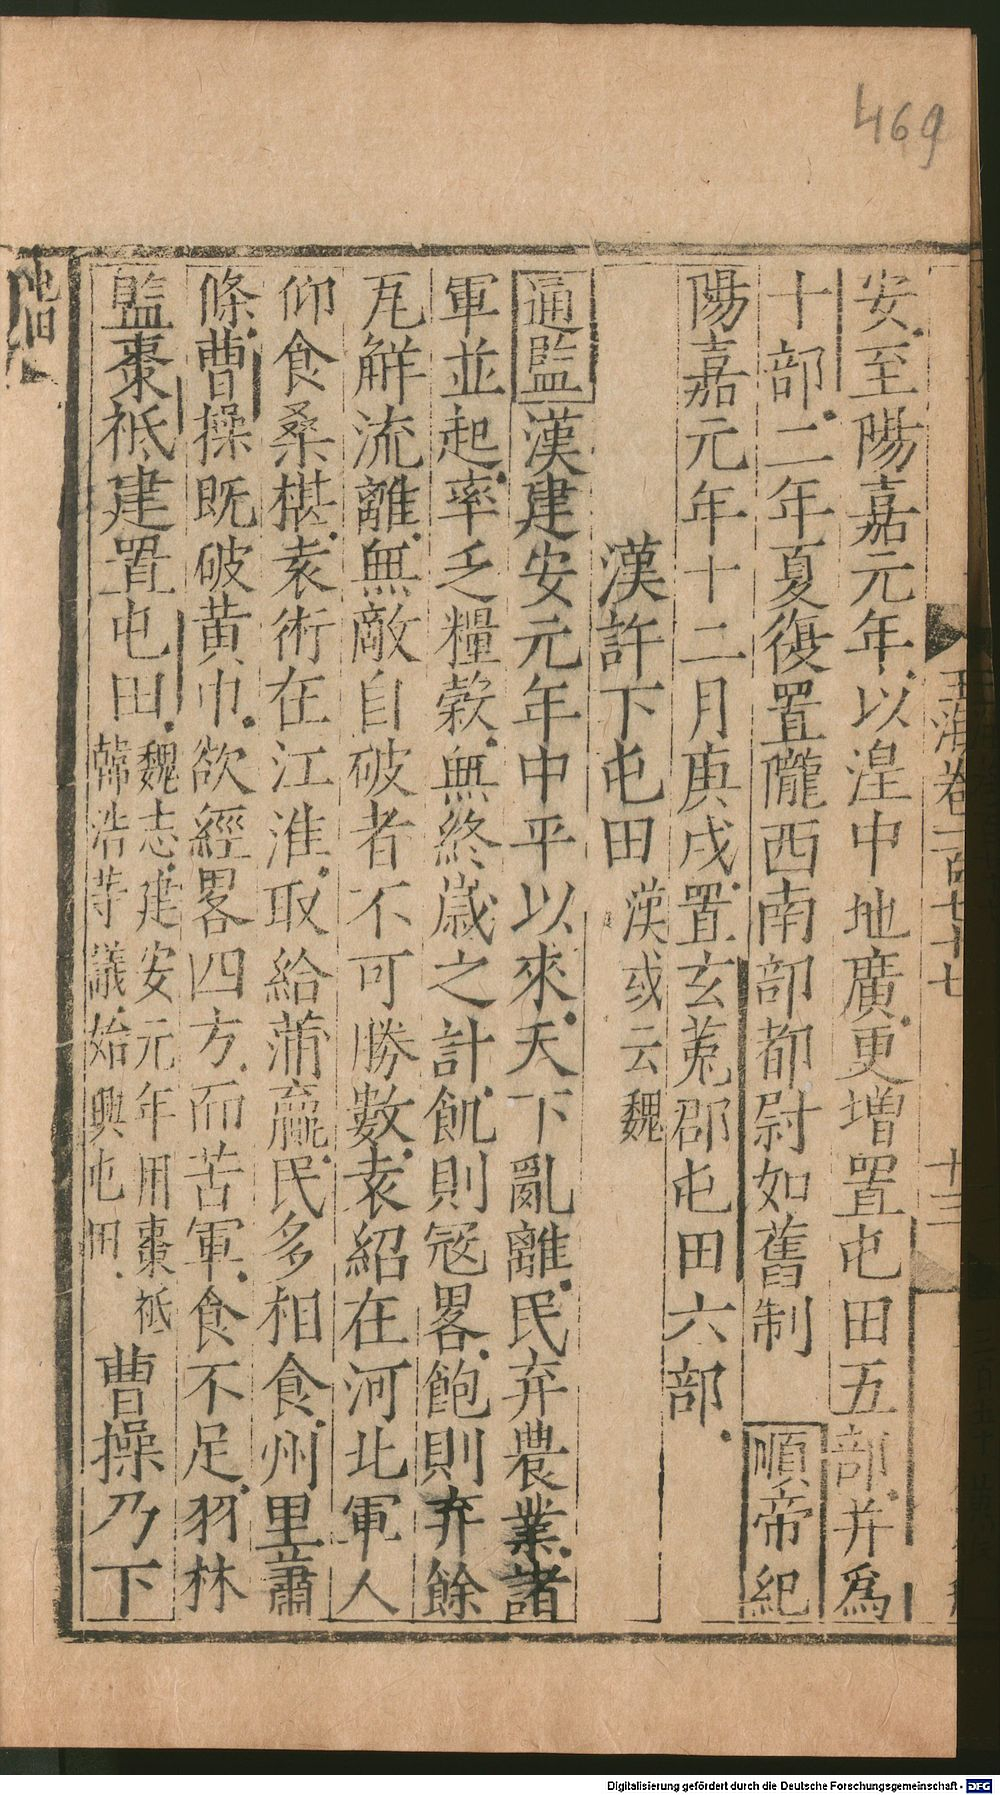 469
玉海卷一百七十七 十三
安至陽嘉元年以湟中地廣更增置屯田五部并爲
十部二年夏復置隴西南部都尉如舊制 順帝紀
陽嘉元年十二月庚戌置玄菟郡屯田六部
漢許下屯田 漢或云魏
通監漢建安元年中平以來天下亂離民弃農業諸
軍並起率乏糧穀無終歲之計飢則寇畧飽則弃餘
瓦解流離無敵自破者不可勝數袁紹在河北軍人
仰食桑椹袁術在江淮取給蒲蠃民多相食州里蕭
條曹操既破黄巾欲經畧四方而苦軍食不足羽林
監棗祗建置屯田 魏志建安元年用棗祗韓浩等議始興屯田 曹操乃下
屯田
Digitalisierung gefördert durch die Deutsche Forschungsgemeinschaft - DFG